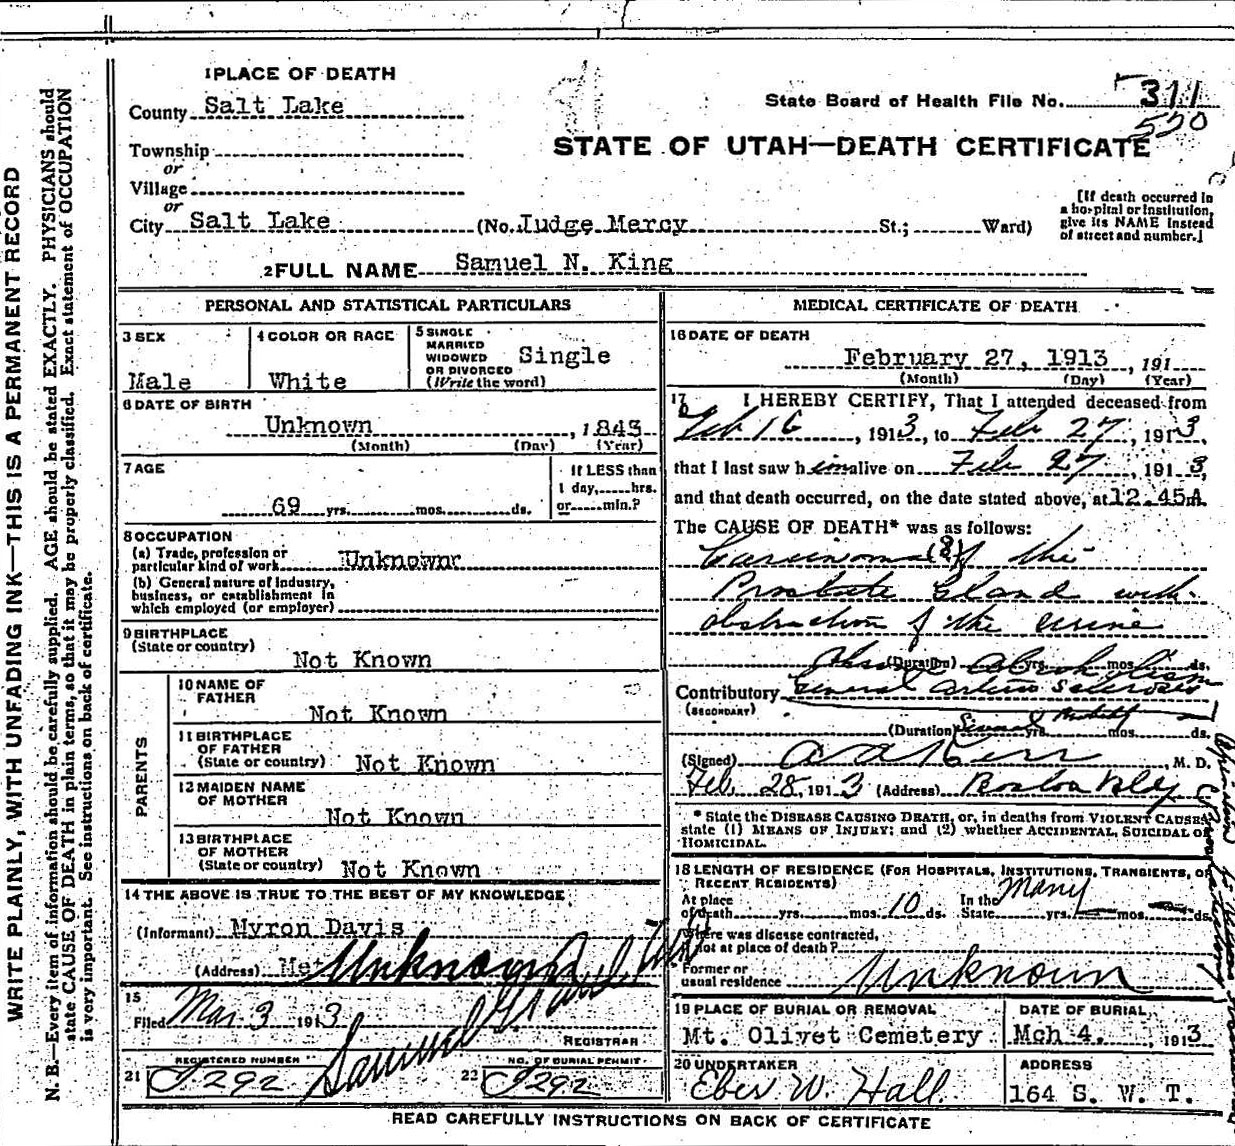 1 PLACE OF DEATH
County Salt Lake
State Board of Health File No. 311
520
STATE OF UTAH—DEATH CERTIFICATE
Township
or
Village
or
City Salt Lake (No. Judge Mercy St.; Ward)
[If death occurred in
a hospital or institution,
give its NAME instead
of street and number.]
2 FULL NAME Samuel N. King
PERSONAL AND STATISTICAL PARTICULARS
3 SEX
Male
4 COLOR OR RACE
White
5 SINGLE
MARRIED
WIDOWED
OR DIVORCED
(Write the word)
Single
6 DATE OF BIRTH
Unknown , 1843
(Month) (Day) (Year)
7 AGE
69 yrs. mos. ds.
If LESS than
1 day, hrs.
or min.?
8 OCCUPATION
(a) Trade, profession or
particular kind of work Unknownr
(b) General nature of industry,
business, or establishment in
which employed (or employer)
9 BIRTHPLACE
(State or country)
Not Known
PARENTS
10 NAME OF
FATHER
Not Known
11 BIRTHPLACE
OF FATHER
(State or country) Not Known
12 MAIDEN NAME
OF MOTHER
Not Known
13 BIRTHPLACE
OF MOTHER
(State or country) Not Known
14 THE ABOVE IS TRUE TO THE BEST OF MY KNOWLEDGE
(Informant) Myron Davis
(Address) Unknown
15
Filed Mar 3 1913
Samuel G. Paul
REGISTRAR
21 REGISTERED NUMBER
J292
22 NO. OF BURIAL PERMIT
J292
MEDICAL CERTIFICATE OF DEATH
16 DATE OF DEATH
February 27, 1913 , 191
(Month) (Day) (Year)
17 I HEREBY CERTIFY, That I attended deceased from
Feb 16 , 1913, to Feb 27, 1913,
that I last saw him alive on Feb 27, 1913,
and that death occurred, on the date stated above, at 12.45A m.
The CAUSE OF DEATH* was as follows:
Carcinoma (?) of the
Prostate Gland with
obstruction of the urine
(Duration) yrs. mos. ds.
Alcoholism
Contributory General Arterio Sclerosis
(SECONDARY)
(Duration) Several yrs. mos. ds.
(Signed) A A Kerr , M. D.
Feb. 28, 1913 (Address) Boston Bldg
* State the DISEASE CAUSING DEATH, or, in deaths from VIOLENT CAUSES,
state (1) MEANS OF INJURY; and (2) whether ACCIDENTAL, SUICIDAL OR
HOMICIDAL.
18 LENGTH OF RESIDENCE (FOR HOSPITALS, INSTITUTIONS, TRANSIENTS, OR
RECENT RESIDENTS)
At place
of death yrs. mos. 10 ds. In the
State Many yrs. mos. ds.
Where was disease contracted,
if not at place of death?
Former or
usual residence Unknown
19 PLACE OF BURIAL OR REMOVAL
Mt. Olivet Cemetery
DATE OF BURIAL
Mch 4. , 1913
20 UNDERTAKER
Eber W. Hall
ADDRESS
164 S. W. T.
READ CAREFULLY INSTRUCTIONS ON BACK OF CERTIFICATE
WRITE PLAINLY, WITH UNFADING INK—THIS IS A PERMANENT RECORD
N. B.—Every item of information should be carefully supplied. AGE should be stated EXACTLY. PHYSICIANS should
state CAUSE OF DEATH in plain terms, so that it may be properly classified. Exact statement of OCCUPATION
is very important. See instructions on back of certificate.